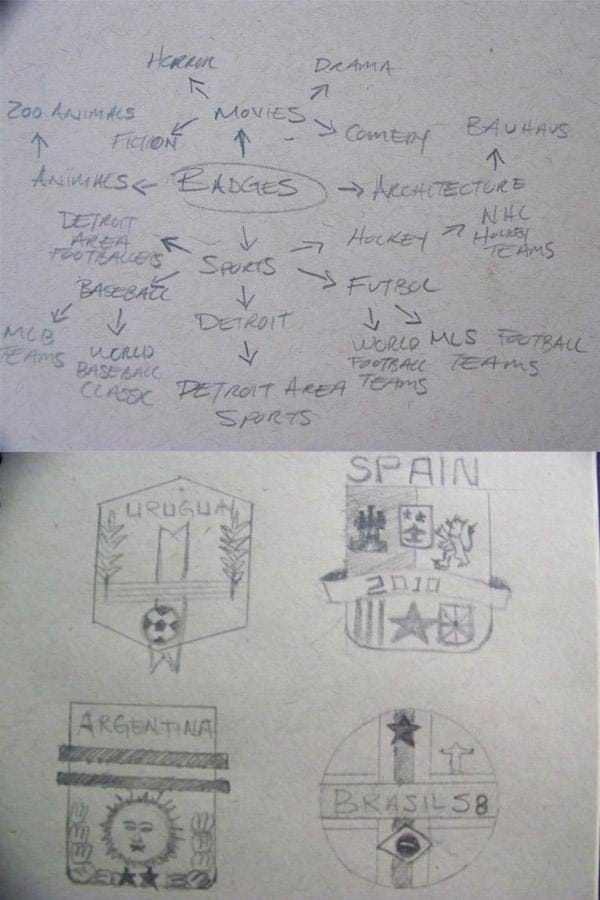 HORROR
DRAMA
ZOO ANIMALS
MOVIES
FICTION
COMEDY
BAUHAUS
ANIMALS
BADGES
ARCHITECTURE
DETROIT
AREA
FOOTBALLERS
HOCKEY
NHL
HOCKEY
TEAMS
SPORTS
BASEBALL
FUTBOL
DETROIT
MLB
TEAMS
WORLD
BASEBALL
CLASSIC
WORLD
FOOTBALL
TEAMS
MLS FOOTBALL
TEAMS
DETROIT AREA
SPORTS
SPAIN
URUGUAY
2010
ARGENTINA
BRASIL 58